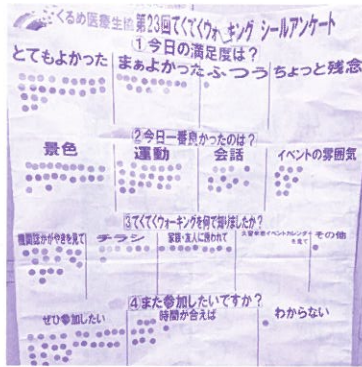 くるめ医療生協 第23回てくてくウォーキング シールアンケート
①今日の満足度は?
とてもよかった まぁよかった ふつう ちょっと残念
②今日一番良かったのは?
景色 運動 会話 イベントの雰囲気
③てくてくウォーキングを何で知りましたか?
機関誌かがやきを見て チラシ 家族・友人に誘われて その他
④また参加したいですか?
ぜひ参加したい 時間が合えば わからない